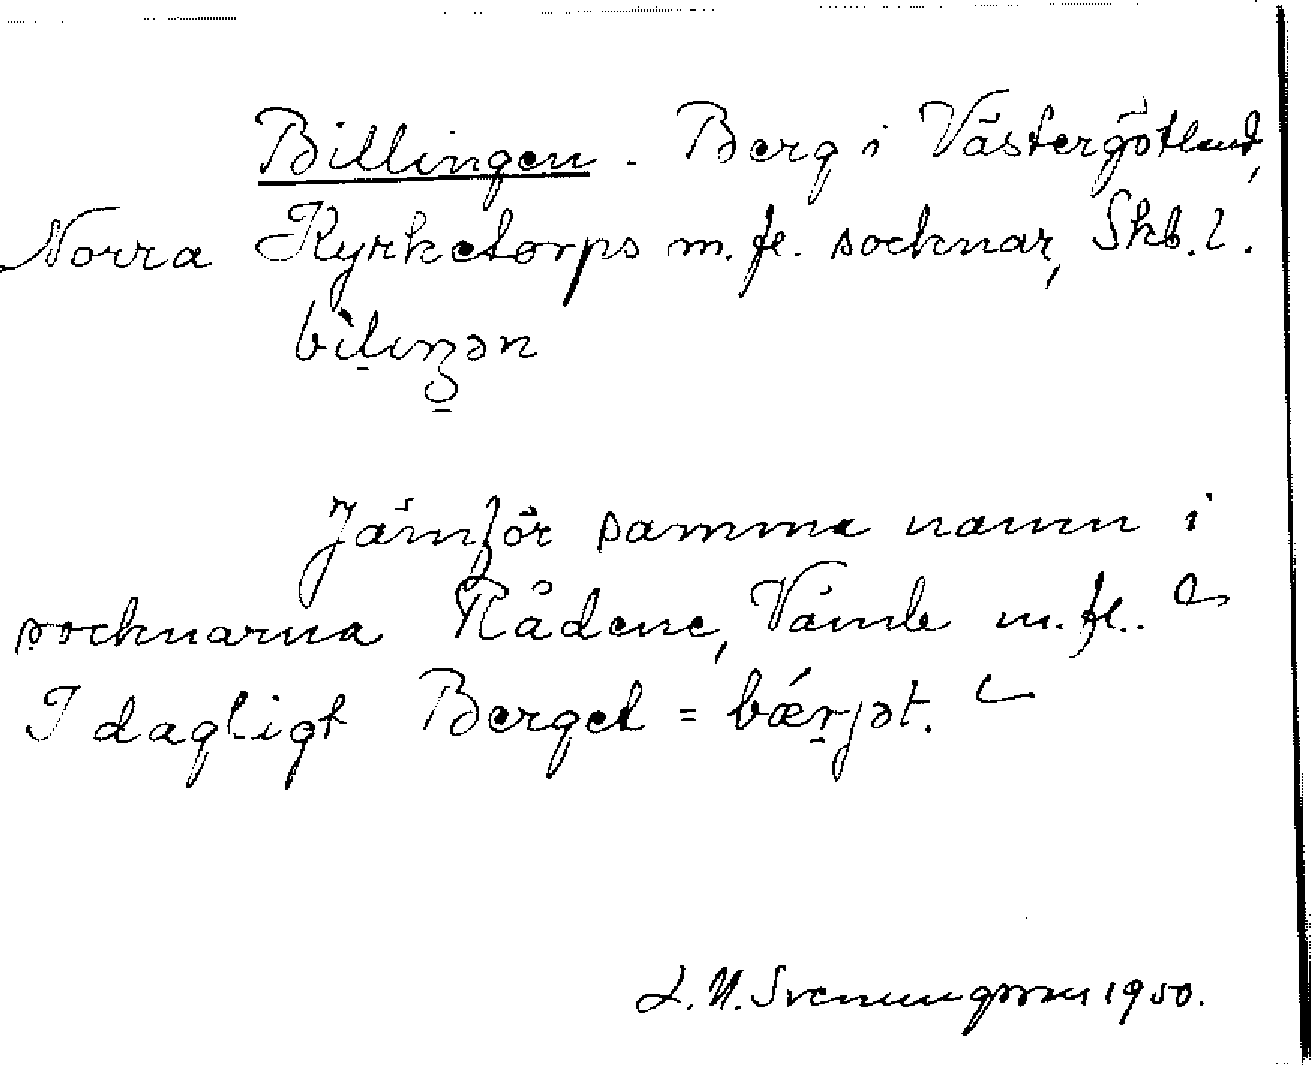 Billingen. Berg i Västergötland,
Norra Kyrketorps m.fl. socknar, Skb. l.
bìli̱ŋən
Jämför samma namn i
socknarna Rådene, Våmb m.fl..
I dagligt Berget = bǽr̠jət.
L. N. Svenungsson 1950.